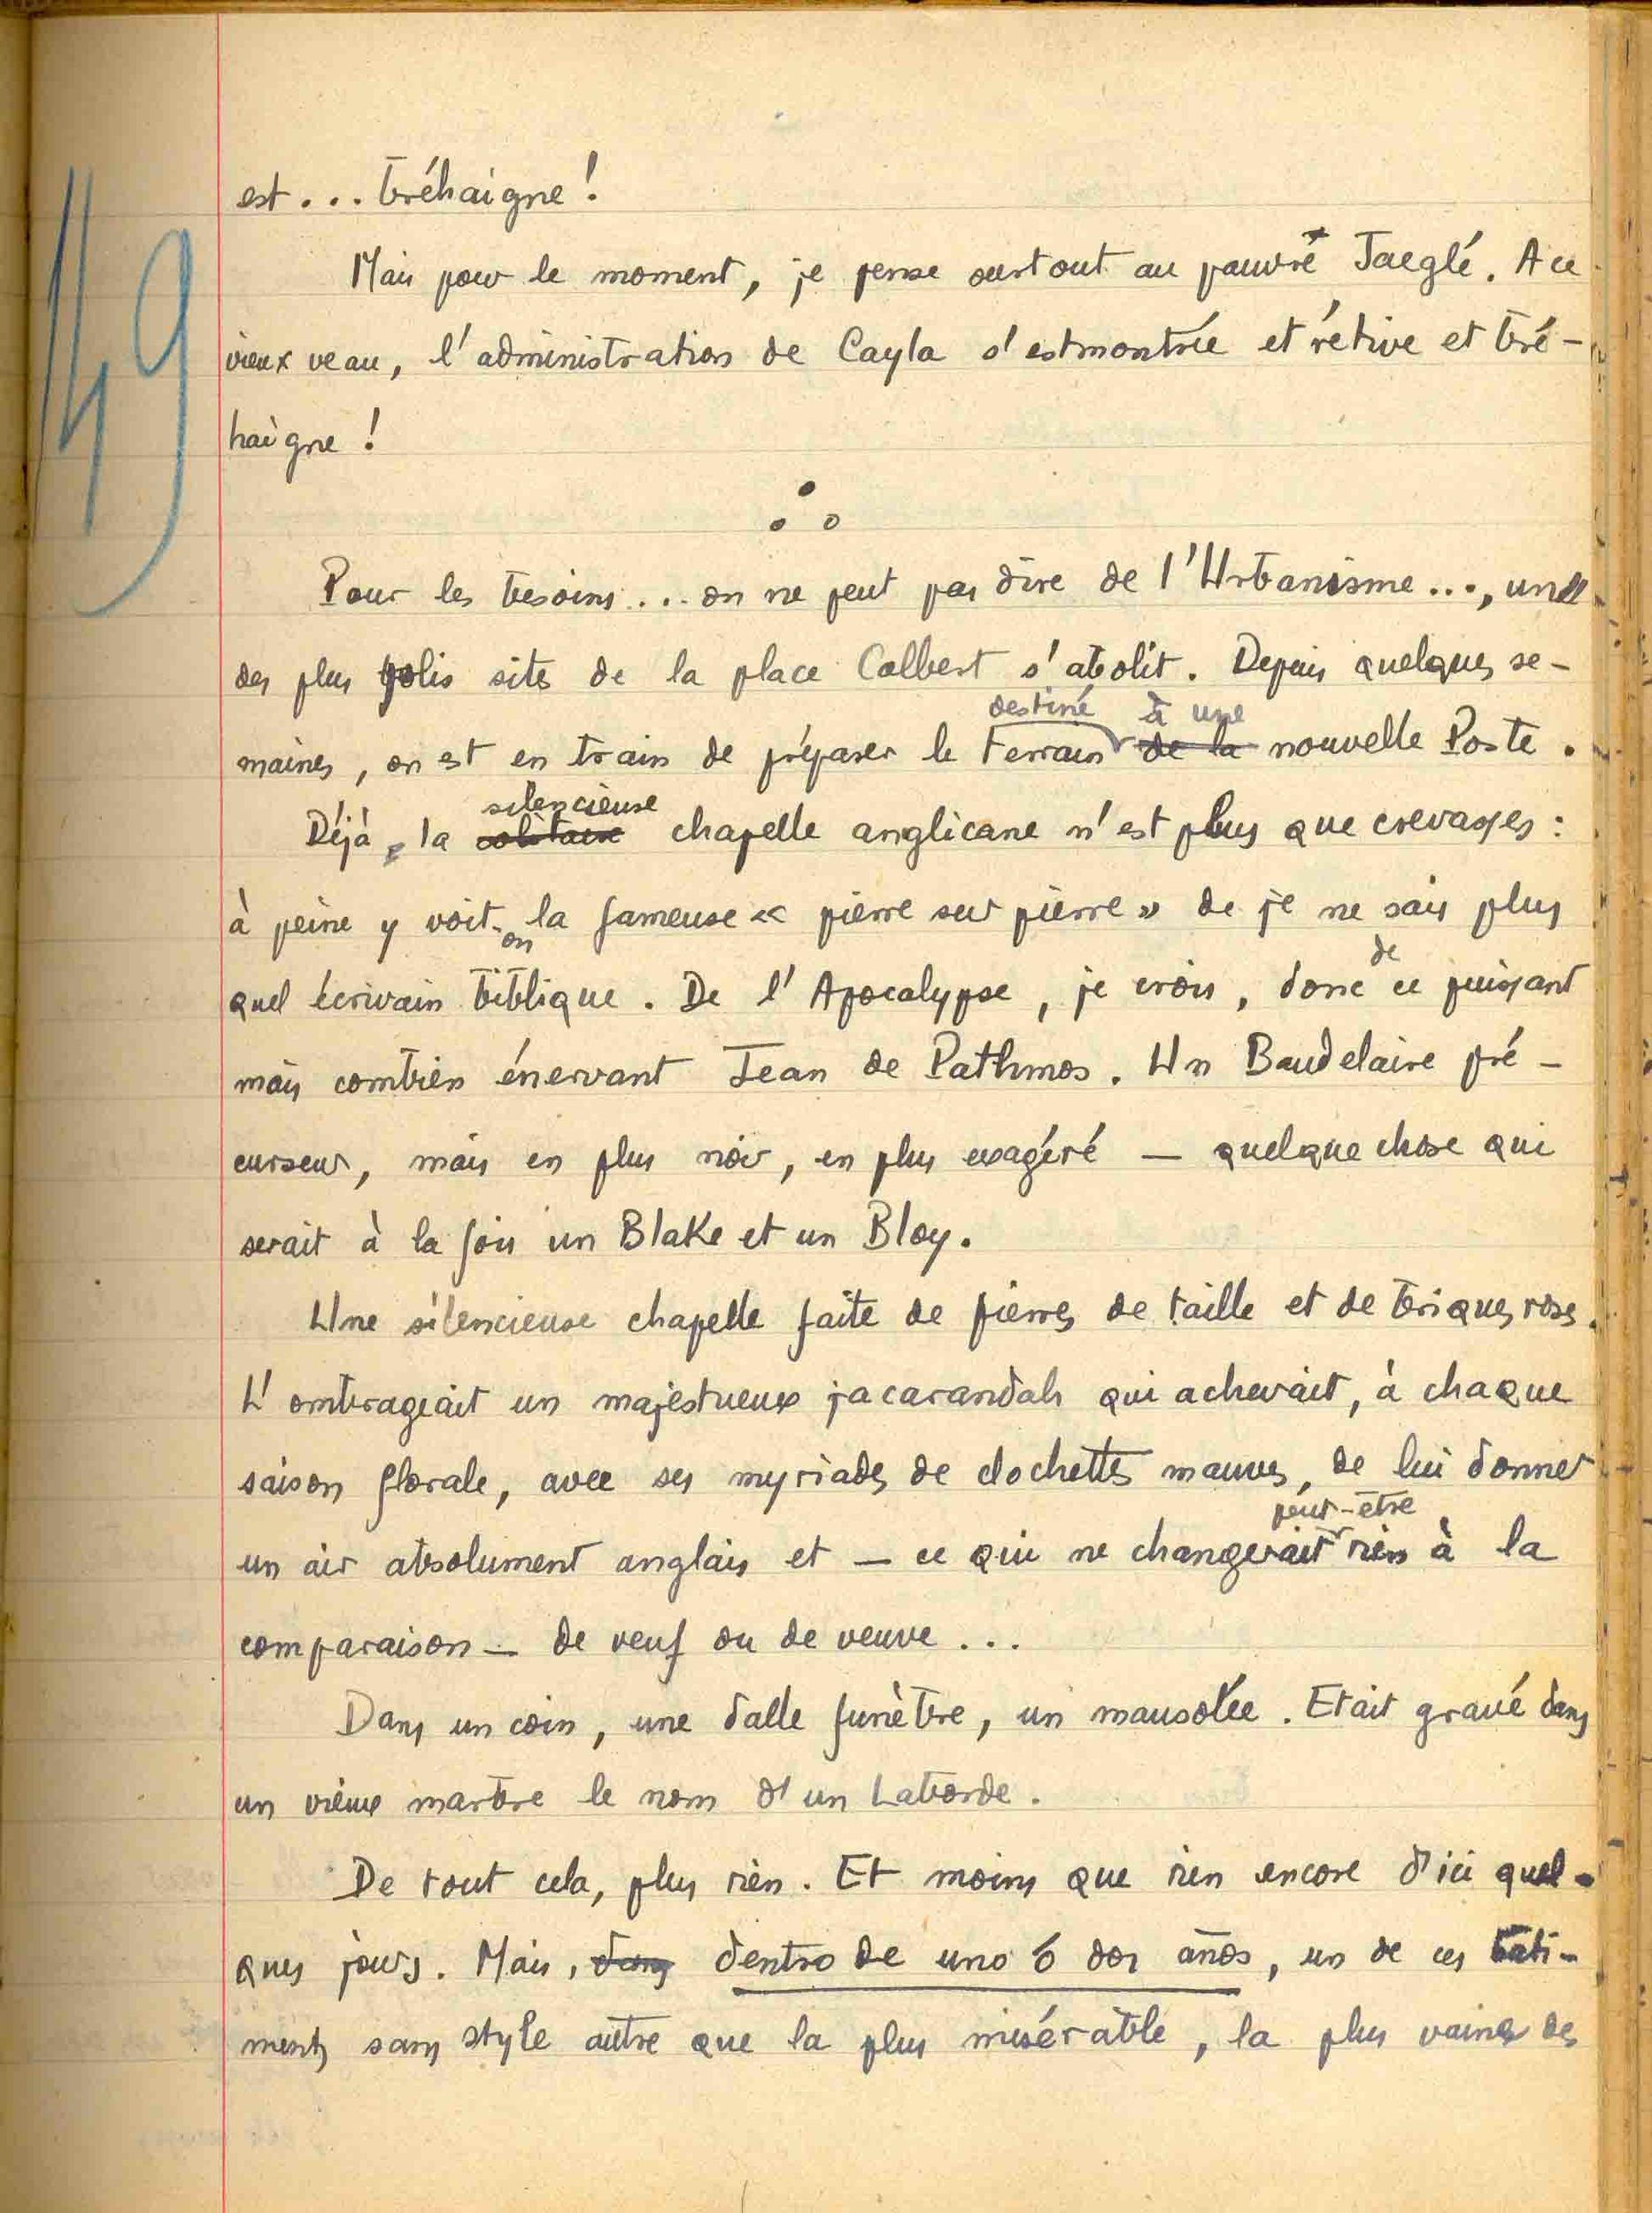 149
est... bréhaigne !
Mais pour le moment, je pense surtout au pauvre Jaeglé. A ce
vieux veau, l'administration de Cayla s'est montrée et rétive et bré-
haigne !
Pour les besoins... on ne peut pas dire de l'Urbanisme..., un
des plus jolis sites de la place Colbert s'abolit. Depuis quelques se-
destiné à une
maines, on est en train de préparer le terrain de la nouvelle Poste.
silencieuse
Déjà, la solitaire chapelle anglicane n'est plus que crevasses :
à peine y voit-on la fameuse « pierre sur pierre » de je ne sais plus
de
quel écrivain biblique. De l'Apocalypse, je crois, donc ce puissant
mais combien énervant Jean de Pathmos. Un Baudelaire pré-
curseur, mais en plus noir, en plus exagéré — quelque chose qui
serait à la fois un Blake et un Bloy.
Une silencieuse chapelle faite de pierres de taille et de briques roses.
L'ombrageait un majestueux jacarandah qui achevait, à chaque
saison florale, avec ses myriades de clochettes mauves, de lui donner
peut-être
un air absolument anglais et — ce qui ne changerait rien à la
comparaison — de veuf ou de veuve...
Dans un coin, une dalle funèbre, un mausolée. Etait gravé dans
un vieux marbre le nom d'un Laborde.
De tout cela, plus rien. Et moins que rien encore d'ici quel-
ques jours. Mais, dans dentro de uno ó dos años, un de ces bâti-
ments sans style autre que la plus misérable, la plus vaine des